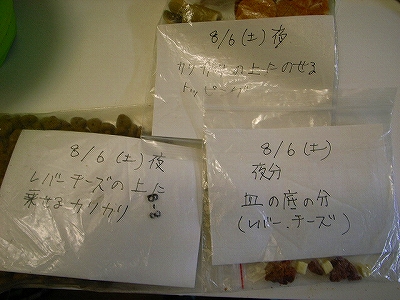 8/6(土)夜
カリカリの上にのせる
トッピング
8/6(土)夜
レバーチーズの上に
乗せるカリカリ
8/6(土)
夜分
皿の底の分
(レバー、チーズ)